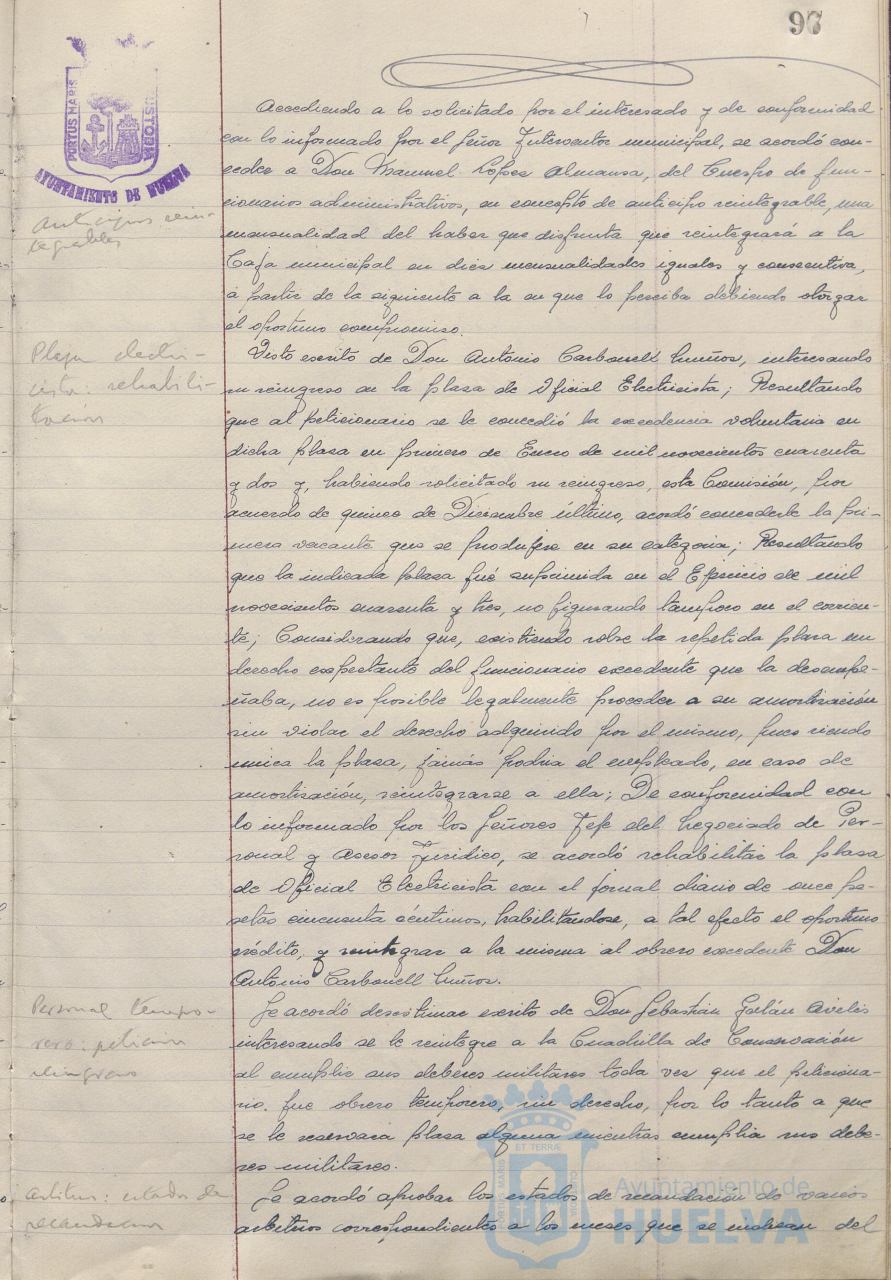 97
PORTUS MARIS
CUSTODIA
AYUNTAMIENTO DE HUELVA
Accediendo a lo solicitado por el interesado y de conformidad
con lo informado por el Señor Interventor municipal, se acordó con-
ceder a Don Manuel López Almansa, del Cuerpo de fun-
cionarios administrativos, en concepto de anticipo reintegrable, una
mensualidad del haber que disfruta que reintegrará a la
Caja municipal en diez mensualidades iguales y consecutiva,
a partir de la siguiente a la en que lo perciba debiendo otorgar
el oportuno compromiso.
Anticipos rein-
tegrables
Visto escrito de Don Antonio Carbonell Muñoz, interesando
su reingreso en la plaza de Oficial Electricista; Resultando
que al peticionario se le concedió la excedencia voluntaria en
dicha plaza en primero de Enero de mil novecientos cuarenta
y dos y, habiendo solicitado su reingreso, esta Comisión, por
acuerdo de quince de Diciembre último, acordó concederle la pri-
mera vacante que se produjese en su categoria; Resultando
que la indicada plaza fué suprimida en el Ejercicio de mil
novecientos cuarenta y tres, no figurando tampoco en el corrien-
te; Considerando que, existiendo sobre la repetida plaza un
derecho expectante del funcionario excedente que la desempe-
ñaba, no es posible legalmente proceder a su amortización
sin violar el derecho adquirido por el mismo, pues siendo
unica la plaza, jamás podria el empleado, en caso de
amortización, reintegrarse a ella; De conformidad con
lo informado por los Señores Jefe del Negociado de Per-
sonal y Asesor Juridico, se acordó rehabilitar la plaza
de Oficial Electricista con el jornal diario de once pe-
setas cincuenta céntimos, habilitandose, a tal efecto el oportuno
crédito, y reintegrar a la misma al obrero excedente Don
Antonio Carbonell Muñoz.
Plaza electri-
cista: rehabili-
tacion
Se acordó desestimar escrito de Don Sebastián Galán Aviles
interesando se le reintegre a la Cuadrilla de Conservación
al cumplir sus deberes militares toda vez que el peticiona-
rio. fue obrero temporero, sin derecho, por lo tanto a que
se le reservara plaza alguna mientras cumplia sus debe-
res militares.
Personal tempo-
rero: peticion
reingreso
Se acordó aprobar los estados de recaudación de varios
arbitrios correspondientes a los meses que se indican del
Arbitrios: estados de
recaudacion
PORTUS MARIS
ET TERRÆ
CUSTODIA
Ayuntamiento de
HUELVA